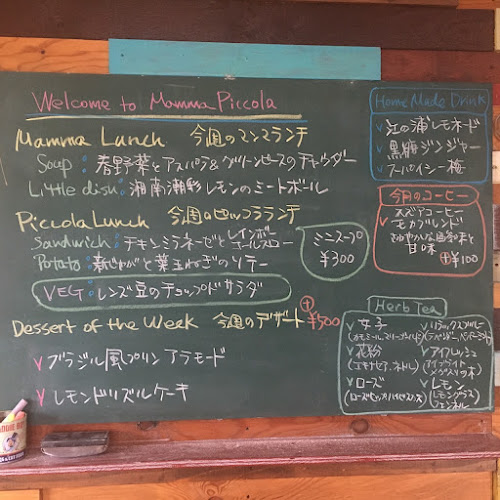 Welcome to Mamma Piccola
Mamma Lunch 今週のマンマランチ
Soup: 春野菜とアスパラ&グリンピースのチャウダー
Little dish: 湘南瀬彩レモンのミートボール
Piccola Lunch 今週のピッコラランチ
Sandwich: チキンミラネーゼとレインボーコールスロー
Potato: 新じゃがと葉玉ねぎのソテー
VEG: レンズ豆のチョップドサラダ
ミニスープ
¥300
Dessert of the Week 今週のデザート +¥500
ブラジル風プリン アラモード
レモンドリズルケーキ
Home Made Drink
江の浦レモネード
黒糖ジンジャー
スパイシー梅
今月のコーヒー
スズアコーヒー
モカブレンド
甘味
+¥100
Herb Tea
女子
花粉
(エキナセア、ネトル)
ローズ
リラックスブルー
アイフレッシュ
レモン
(レモングラス
フェンネル